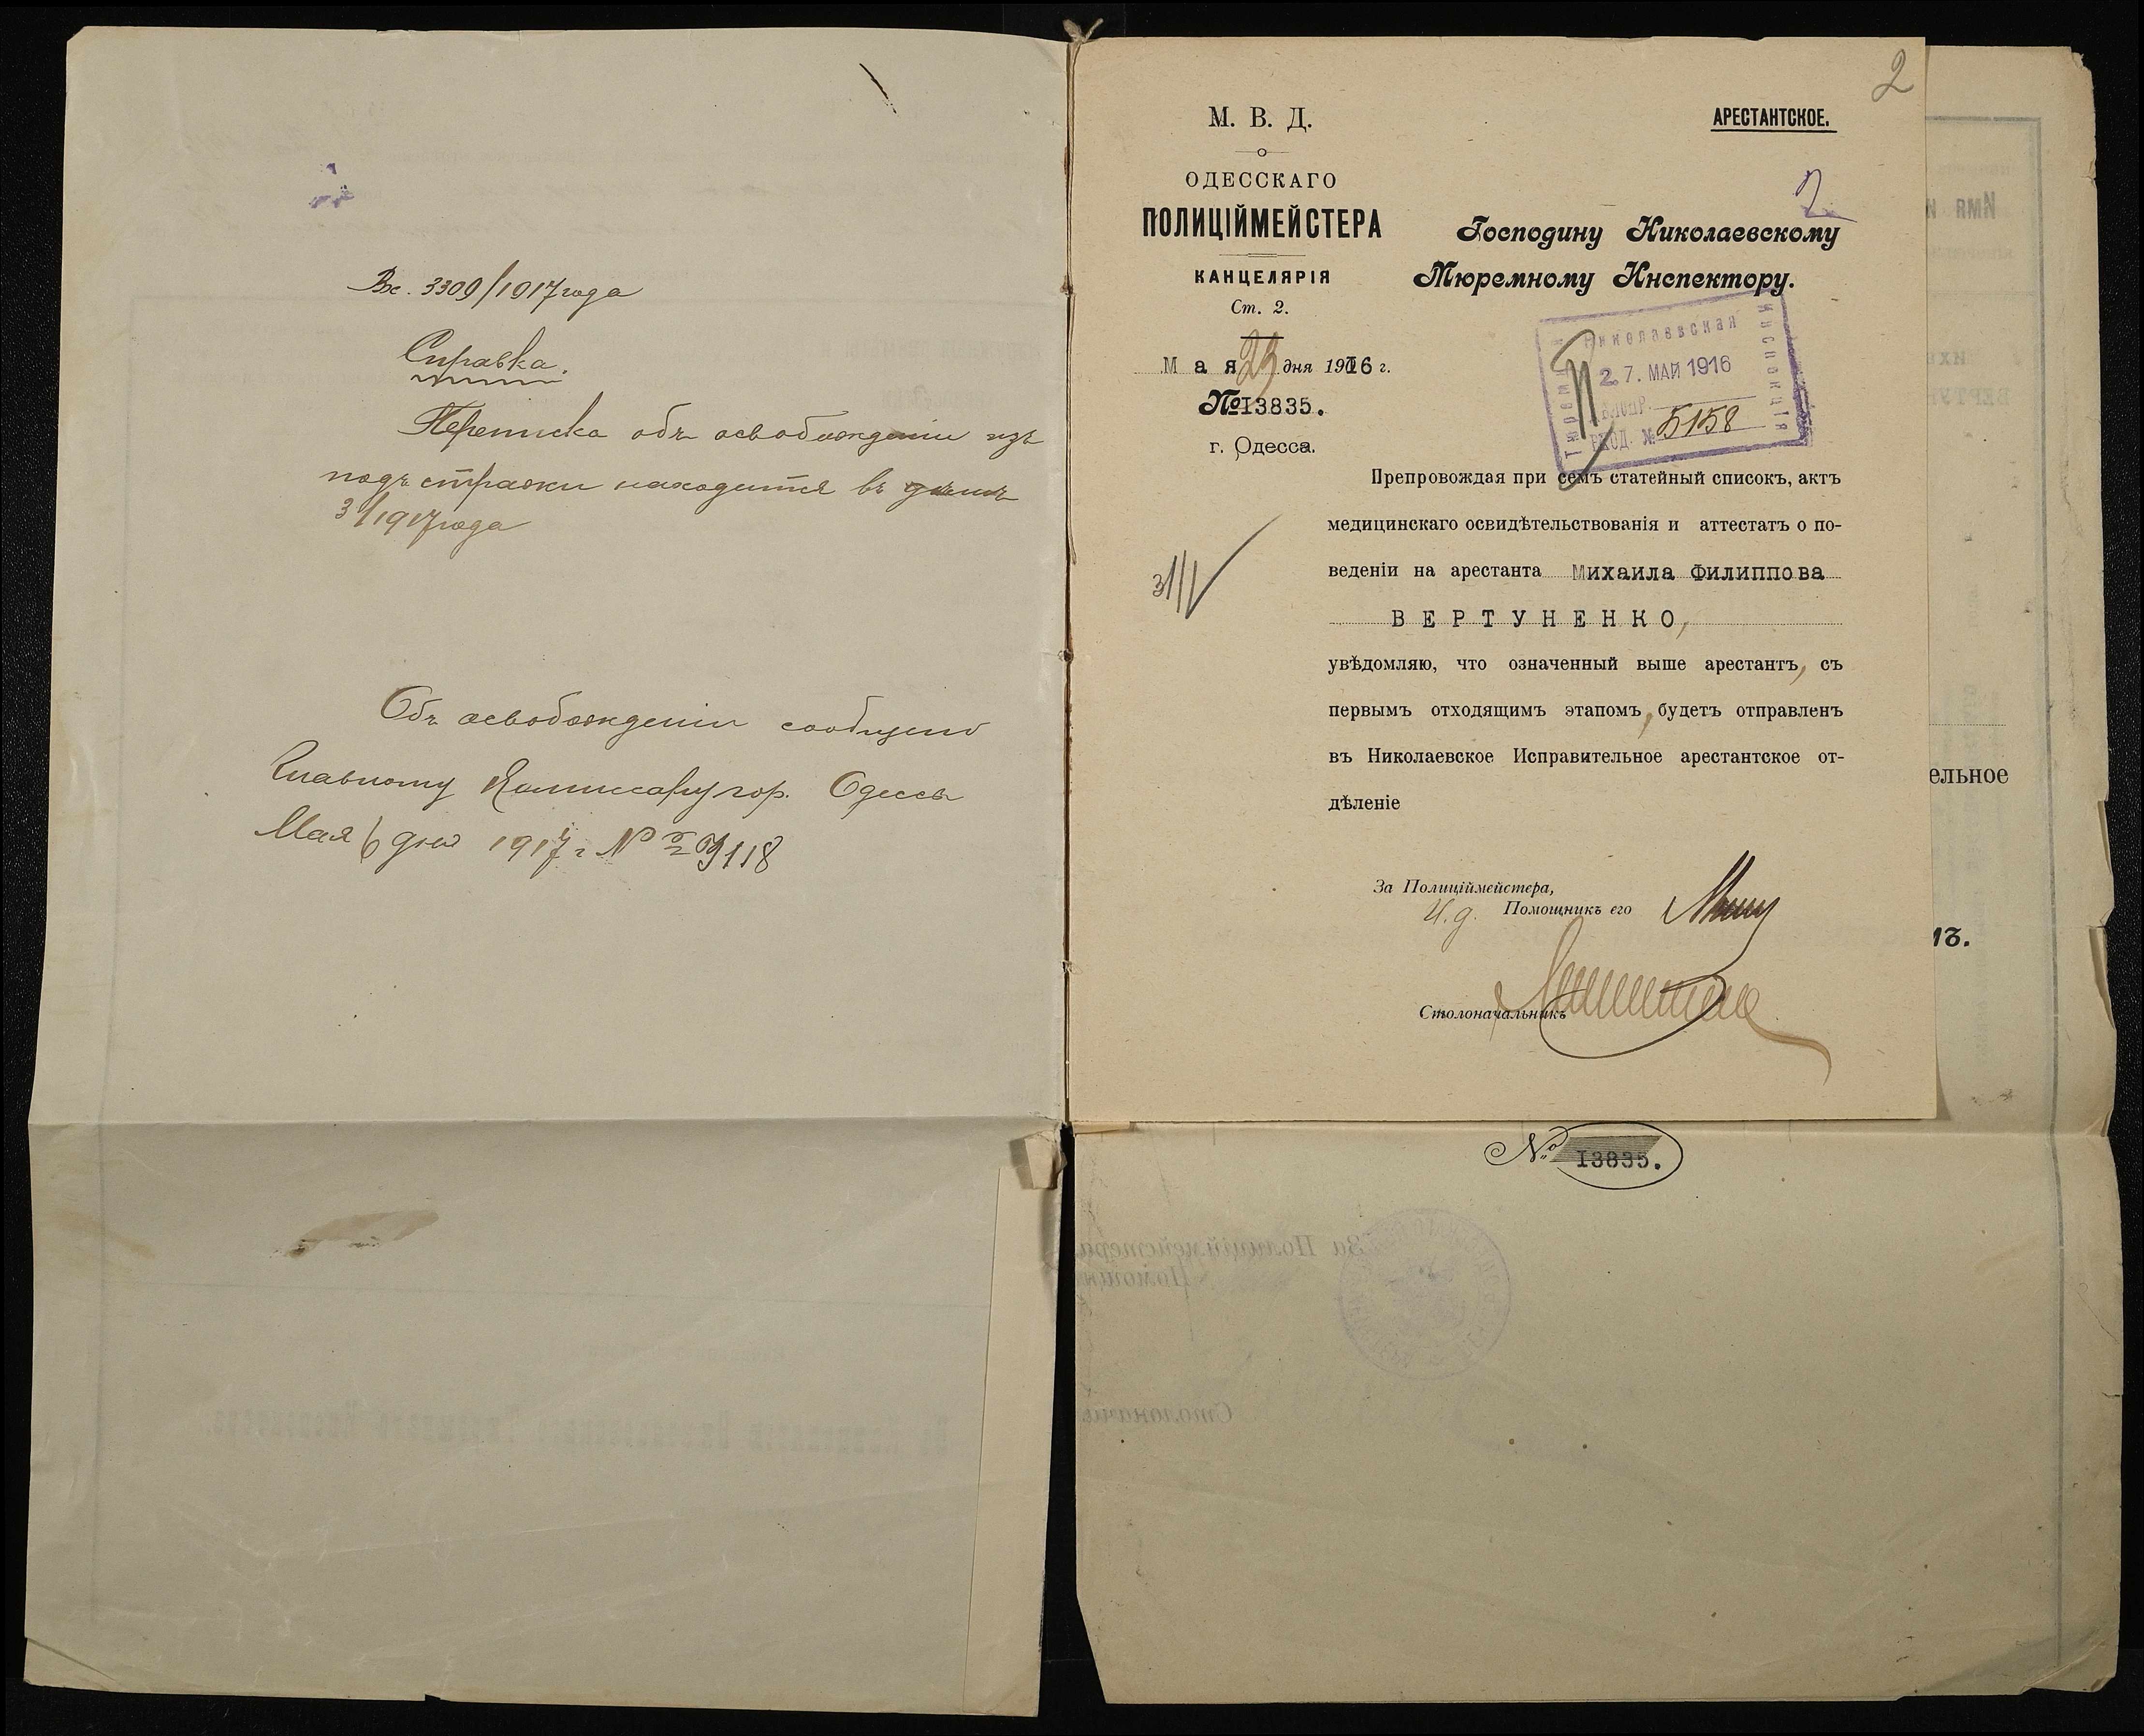 Вх. 3309/1917 года
Справка.
Переписка объ освобожденіи изъ
подъ стражи находится въ
3/1917 года
Объ освобожденіи сообщено
Главному Комиссару гор. Одессы
Мая 6 дня 1917 г. №
2
М. В. Д.
ОДЕССКАГО
ПОЛИЦІЙМЕЙСТЕРА
КАНЦЕЛЯРІЯ
Ст. 2.
Мая 23 дня 1916 г.
№ 13835.
г. Одесса.
АРЕСТАНТСКОЕ.
2
Господину Николаевскому
Тюремному Инспектору.
Николаевская
Тюремная
Инспекція
27. МАЙ 1916
ВХОД. № 5158
Препровождая при семъ статейный списокъ, актъ
медицинскаго освидѣтельствованія и аттестатъ о по-
веденіи на арестанта Михаила Филиппова
ВЕРТУНЕНКО,
увѣдомляю, что означенный выше арестантъ, съ
первымъ отходящимъ этапомъ, будетъ отправленъ
въ Николаевское Исправительное арестантское от-
дѣленіе
За Полиціймейстера,
И. д. Помощникъ его
Столоначальникъ
№ 13835.
ельное